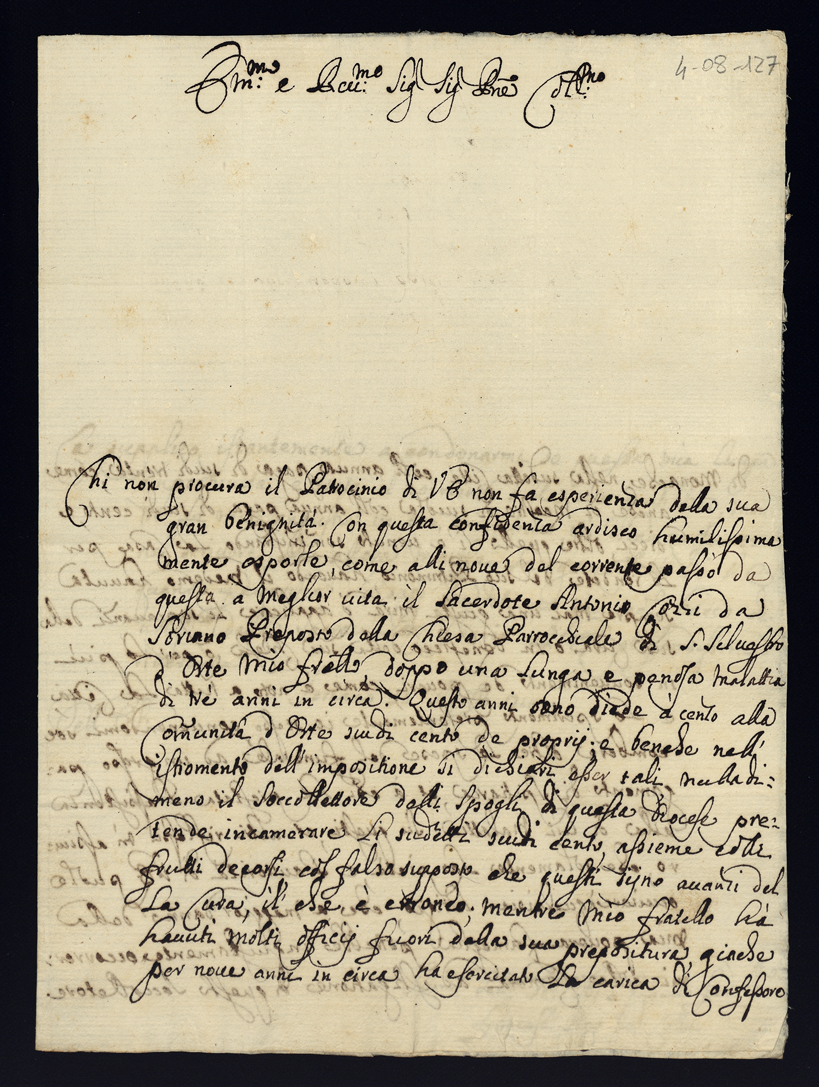 4-08-127
Em.mo e Reu.mo Sig Sig Prne Coll.mo
Chi non procura il Patrocinio di VE non fa esperienza della sua
gran benignità. Con questa confidenza ardisco humilissima
mente esporle, come alli noue del corrente passò da
questa a meglior uita il Sacerdote Antonio Cozzi da
Soriano Preposto della Chiesa Parrocchiale di S. Siluestro
d Orte mio frãtello, doppo una lunga e penosa malattia
di trè anni in circa. Questo anni sono diede à censo alla
Comunità d Orte scudi cento de proprij: è benche nell'
istromento dell'impositione si dichiari esser tali, nulladi:
meno il Soccollettore delli Spogli di questa Diocese pre:
tende incamerare li sudetti scudi cento, assieme colli
frutti decorsi col falso supposto che questi sijno auanzi del
la Cura, il' che è erroneo; mentre mio fratello hà
hauuti molti officij fuori della sua prepositura, giache
per noue anni in circa ha esercitato la carica di Confessore